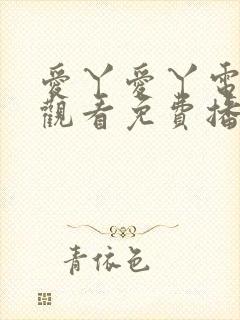 愛丫愛丫電
觀看免費播
青依色